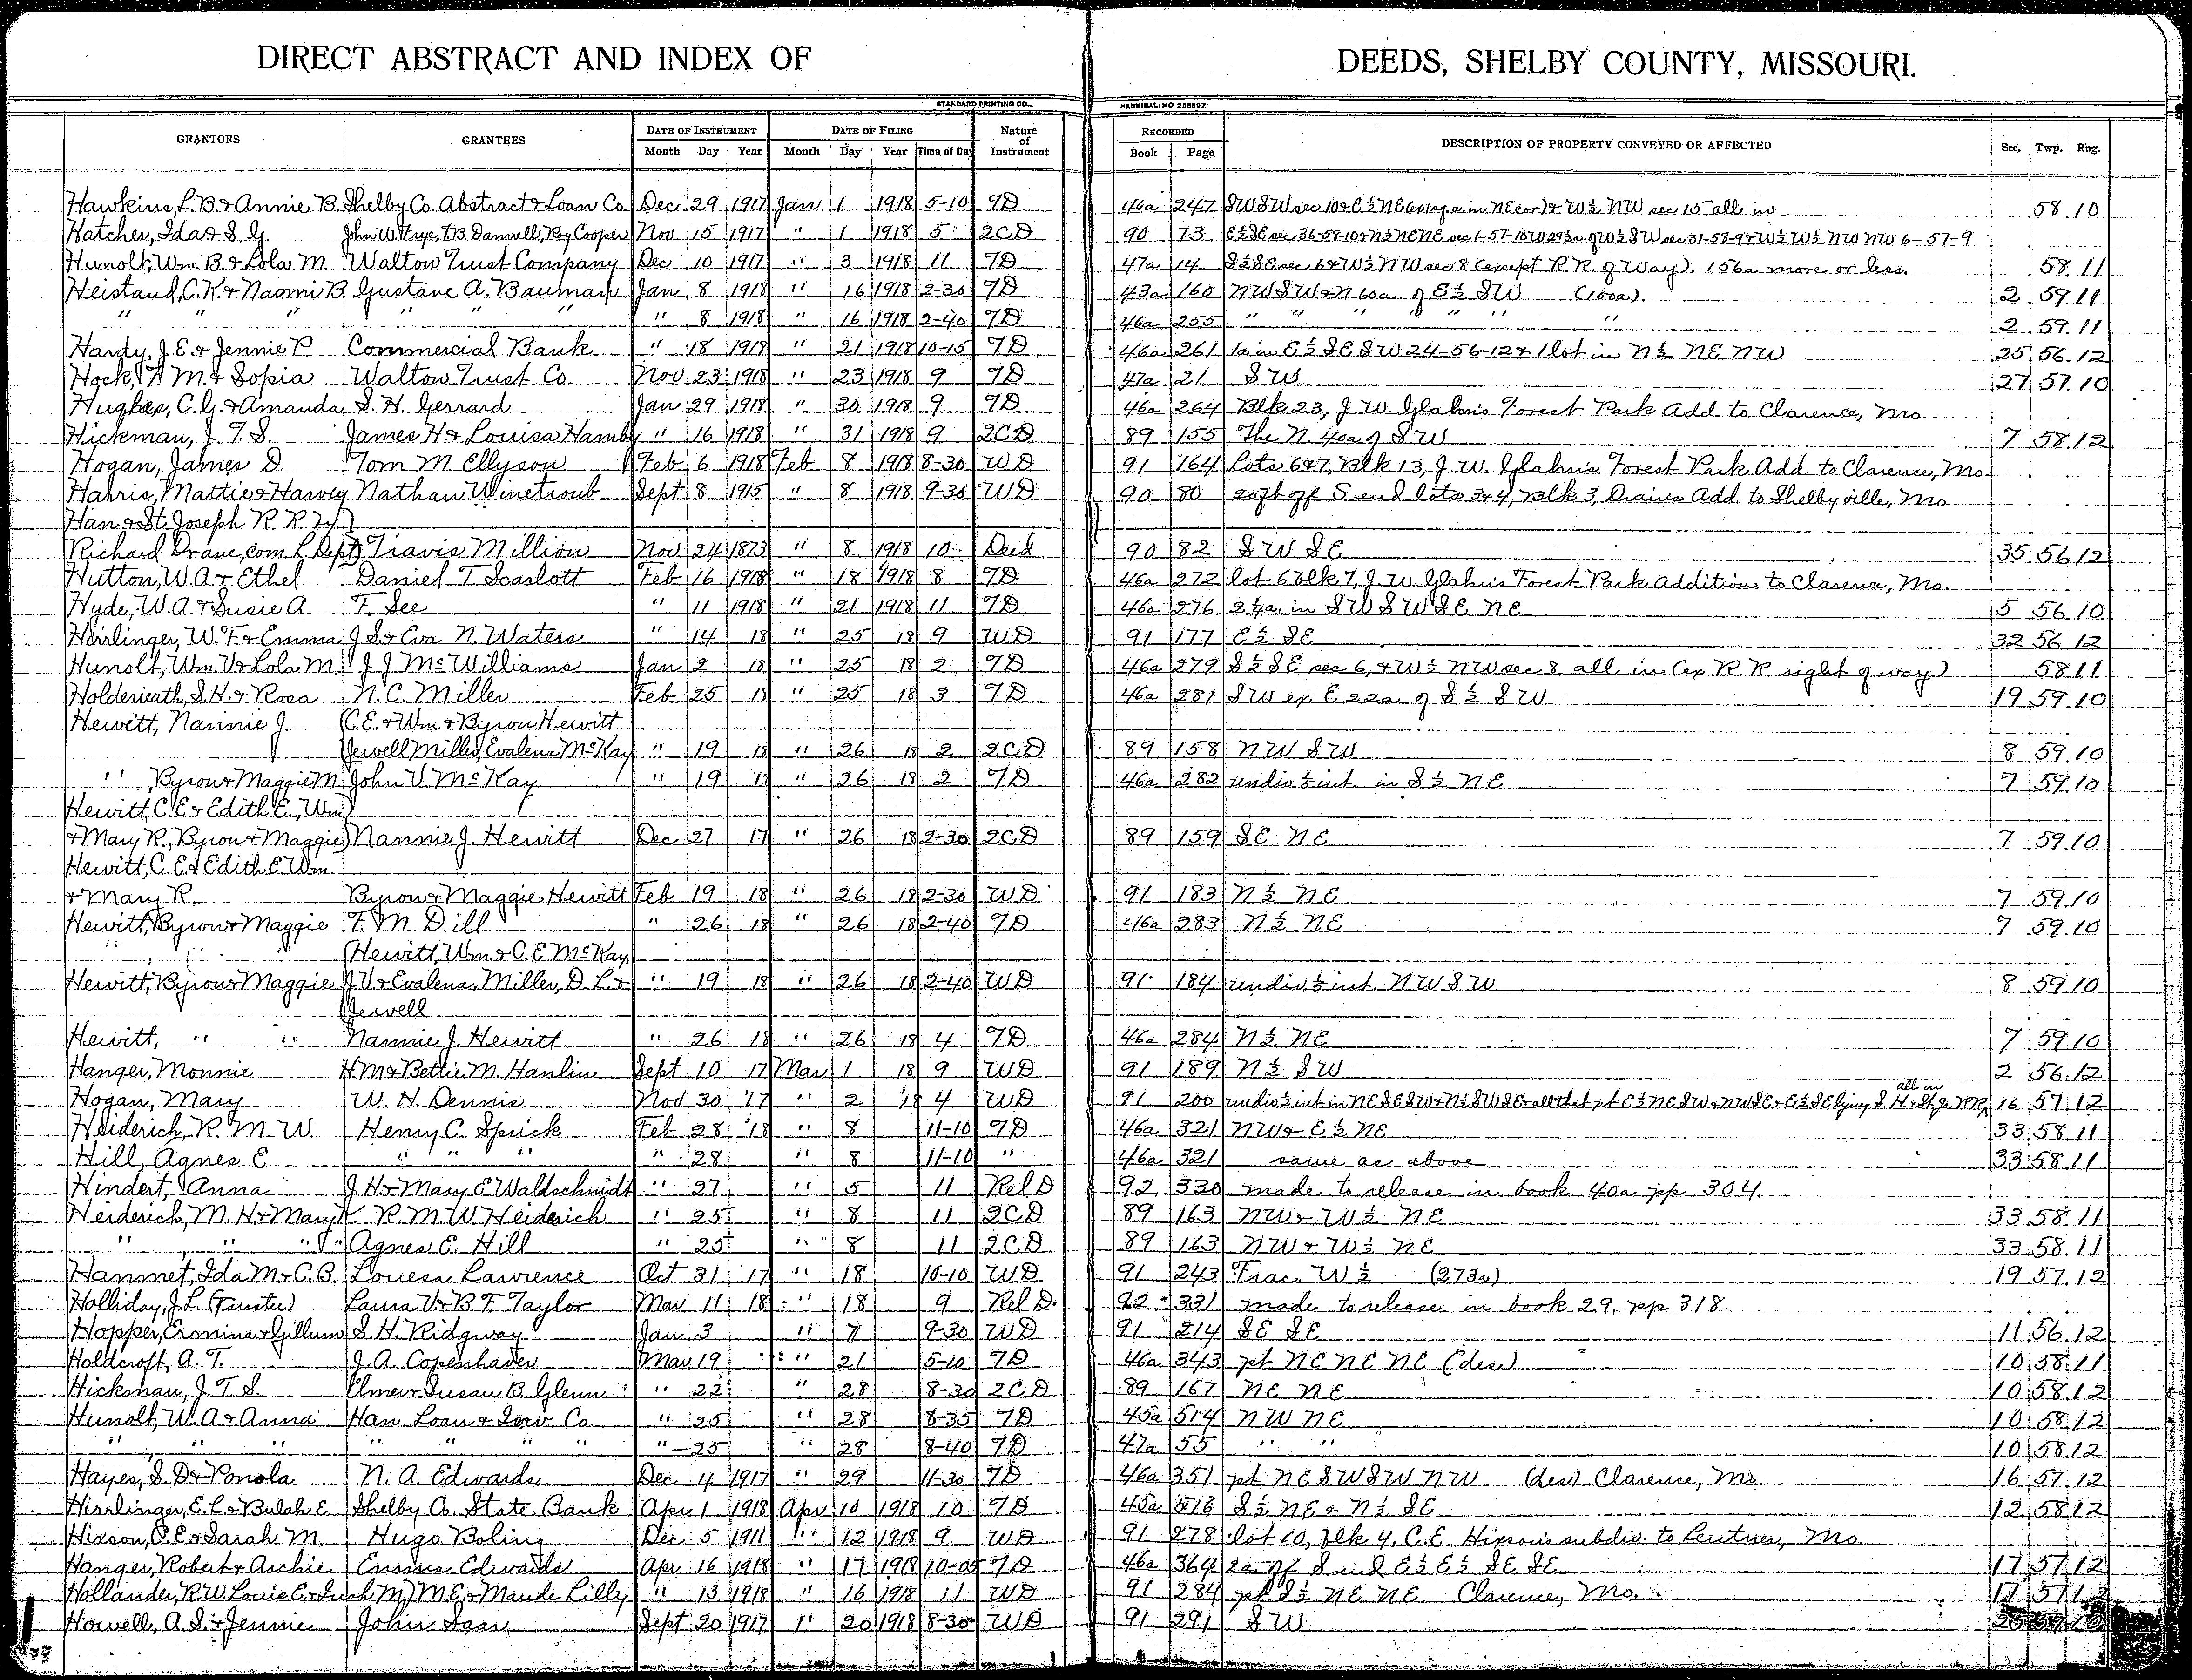 DIRECT ABSTRACT AND INDEX OF DEEDS, SHELBY COUNTY, MISSOURI.
STANDARD PRINTING CO., HANNIBAL, MO 258897
GRANTORS GRANTEES DATE OF INSTRUMENT DATE OF FILING Nature of Instrument RECORDED DESCRIPTION OF PROPERTY CONVEYED OR AFFECTED Sec. Twp. Rng.
Month Day Year Month Day Year Time of Day Book Page
Hawkins, L.B. & Annie B. Shelby Co. Abstract & Loan Co. Dec 29 1917 Jan 1 1918 5-10 TD 46a 247 SW SW sec 10 & E½ NE in NE cor) & W½ NW sec 15 all in 58 10
Hatcher, Ida & S. G. John W. Frye, T.B. Damrell, Roy Cooper Nov 15 1917 " 1 1918 5 2CD 90 73 E½ SE sec 36-58-10 & N½ NE NE sec 1-57-10 W 29½a of W½ SW sec 31-58-9 & W½ W½ NW NW 6-57-9
Hunolt, Wm. B. & Lola M Walton Trust Company Dec 10 1917 " 3 1918 11 TD 47a 14 S½ SE sec 6 & W½ NW sec 8 (except R.R. of Way). 156a more or less. 58 11
Heistand, C.K. & Naomi B Gustave A. Bauman Jan 8 1918 " 16 1918 2-30 TD 43a 160 NW SW & N 60a. of E½ SW (100a). 2 59 11
" " " " " " " 8 1918 " 16 1918 2-40 TD 46a 255 " " " " " " " 2 59 11
Hardy, J.E. & Jennie P. Commercial Bank " 18 1918 " 21 1918 10-15 TD 46a 261 1a in E½ SE SW 24-56-12 & 1 lot in N½ NE NW 25 56 12
Hock, A M. & Sopia Walton Trust Co Nov 23 1918 " 23 1918 9 TD 47a 21 SW 27 57 10
Hughes, C.G. & Amanda S. H. Gerrard Jan 29 1918 " 30 1918 9 TD 46a 264 Blk 23, J W. Glahn's Forest Park Add to Clarence, Mo.
Hickman, J. T. S. James H & Louisa Hamby " 16 1918 " 31 1918 9 2CD 89 155 The N. 40a of SW 7 58 12
Hogan, James D Tom M. Ellyson Feb 6 1918 Feb 8 1918 8-30 WD 91 164 Lots 6&7, Blk 13, J. W. Glahn's Forest Park Add to Clarence, Mo.
Harris, Mattie & Harvey Nathan Winetroub Sept 8 1915 " 8 1918 9-30 WD 90 80 20ft off S end lots 3&4, Blk 3, Drains Add to Shelbyville, Mo
Han & St. Joseph R R by
Richard Drane, com L Dept) Travis Million Nov 24 1873 " 8 1918 10- Deed 90 82 SW SE 35 56 12
Hutton, W.A. & Ethel Daniel T. Scarlott Feb 16 1918 " 18 1918 8 TD 46a 272 lot 6 blk 7, J. W. Glahn's Forest Park Addition to Clarence, Mo.
Hyde, W. A. & Susie A F. See " 11 1918 " 21 1918 11 TD 46a 276 2¼a. in SW SW SE NE 5 56 10
Heirlinger, W. F. & Emma J S. & Eva N. Waters " 14 18 " 25 18 9 WD 91 177 E½ SE 32 56 12
Hunolt, Wm. V. & Lola M. J J McWilliams Jan 2 18 " 25 18 2 TD 46a 279 S½ SE sec 6, & W½ NW sec 8 all in (ex R R right of way) 58 11
Holderieath, S.H. & Rosa N. C. Miller Feb 25 18 " 25 18 3 TD 46a 281 SW ex E 22a of S½ SW 19 59 10
Hewitt, Nannie J. (C.E. & Wm. & Byron Hewitt
(Jewell Miller, Evalena McKay " 19 18 " 26 18 2 2CD 89 158 NW SW 8 59 10
" , Byron & Maggie M. John V. McKay " 19 18 " 26 18 2 TD 46a 282 undiv ½ int in S½ NE 7 59 10
Hewitt, C.E. & Edith E., Wm.)
& Mary R., Byron & Maggie) Nannie J. Hewitt Dec 27 17 " 26 18 2-30 2CD 89 159 SE NE 7 59 10
Hewitt, C. E. & Edith E. Wm.
& Mary R. Byron & Maggie Hewitt Feb 19 18 " 26 18 2-30 WD 91 183 N½ NE 7 59 10
Hewitt, Byron & Maggie F. M Dill " 26 18 " 26 18 2-40 TD 46a 283 N½ NE 7 59 10
" " (Hewitt, Wm. & C.E McKay,
Hewitt, Byron & Maggie J.V. & Evalena, Miller, D L. & " 19 18 " 26 18 2-40 WD 91 184 undiv ½ int. NW SW 8 59 10
(Jewell
Hewitt, " " Nannie J. Hewitt " 26 18 " 26 18 4 TD 46a 284 N½ NE 7 59 10
Hanger, Monnie H M & Bettie M. Hanlin Sept 10 17 Mar 1 18 9 WD 91 189 N½ SW 2 56 12
Hogan, Mary W. H. Dennis Nov 30 '17 " 2 '18 4 WD 91 200 undiv ½ int in NE SE SW & N½ SW SE & all that pt E½ NE SW & NW SE & E½ SE lying S. H & St. Jo. RR, all in 16 57 12
Heiderich, R. M. W. Henry C. Sprick Feb 28 '18 " 8 11-10 TD 46a 321 NW & E½ NE 33 58 11
Hill, Agnes E " " " " 28 " 8 11-10 " 46a 321 same as above 33 58 11
Hindert, Anna J. H & Mary E Waldschmidt " 27 " 5 11 Rel D 92 330 made to release in book 40a pp 304.
Heiderich, M. H & Mary K R M W Heiderich " 25 " 8 11 2CD 89 163 NW & W½ NE 33 58 11
" " " Agnes E. Hill " 25 " 8 11 2CD 89 163 NW & W½ NE 33 58 11
Hammet, Ida M & C.B. Louesa Lawrence Oct 31 17 " 18 10-10 WD 91 243 Frac. W½ (273a) 19 57 12
Holliday, J.L. (Trustee) Laura V. & B. F. Taylor Mar 11 18 " 18 9 Rel D. 92 331 made to release in book 29, pp 318
Hopper, Ermina & Gillum S. H. Ridgway Jan 3 " 7 9-30 WD 91 214 SE SE 11 56 12
Holdcroft, A. T. J. A. Copenhaver Mar 19 " 21 5-10 TD 46a 343 pt NE NE NE (des) 10 58 11
Hickman, J. T. S. Elmer & Susan B. Glenn " 22 " 28 8-30 2CD 89 167 NE NE 10 58 12
Hunolt, W. A & Anna Han. Loan & Inv Co. " 25 " 28 8-35 TD 45a 514 NW NE 10 58 12
" " " " " " " " 25 " 28 8-40 TD 47a 55 " " 10 58 12
Hayes, S. D. & Ponola N. A. Edwards Dec 4 1917 " 29 11-30 TD 46a 351 pt NE SW SW NW (des) Clarence, Mo. 16 57 12
Hirrlinger, E. L. & Bulah E Shelby Co. State Bank Apr 1 1918 Apr 10 1918 10 TD 45a 516 S½ NE & N½ SE 12 58 12
Hixson, C.E. & Sarah M. Hugo Boling Dec 5 1911 " 12 1918 9 WD 91 278 lot 10, blk 4, C.E. Hixson subdiv. to Lentner, Mo.
Hanger, Robert & Archie Emma Edwards Apr 16 1918 " 17 1918 10-05 TD 46a 364 2a. off S end E½ E½ SE SE 17 57 12
Hollander, R.W. Louie E. & M) M.E. & Maude Lilly " 13 1918 " 16 1918 11 WD 91 284 pt S½ NE NE Clarence, Mo. 17 57 12
Howell, A. S. & Jennie John Saar Sept 20 1917 " 20 1918 8-30 WD 91 291 SW